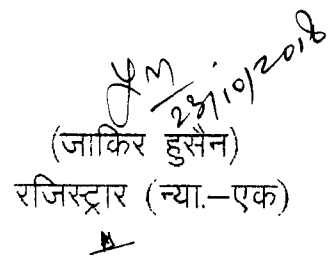 23/10/2018
(जाकिर हुसैन)
रजिस्ट्रार (न्या.–एक)